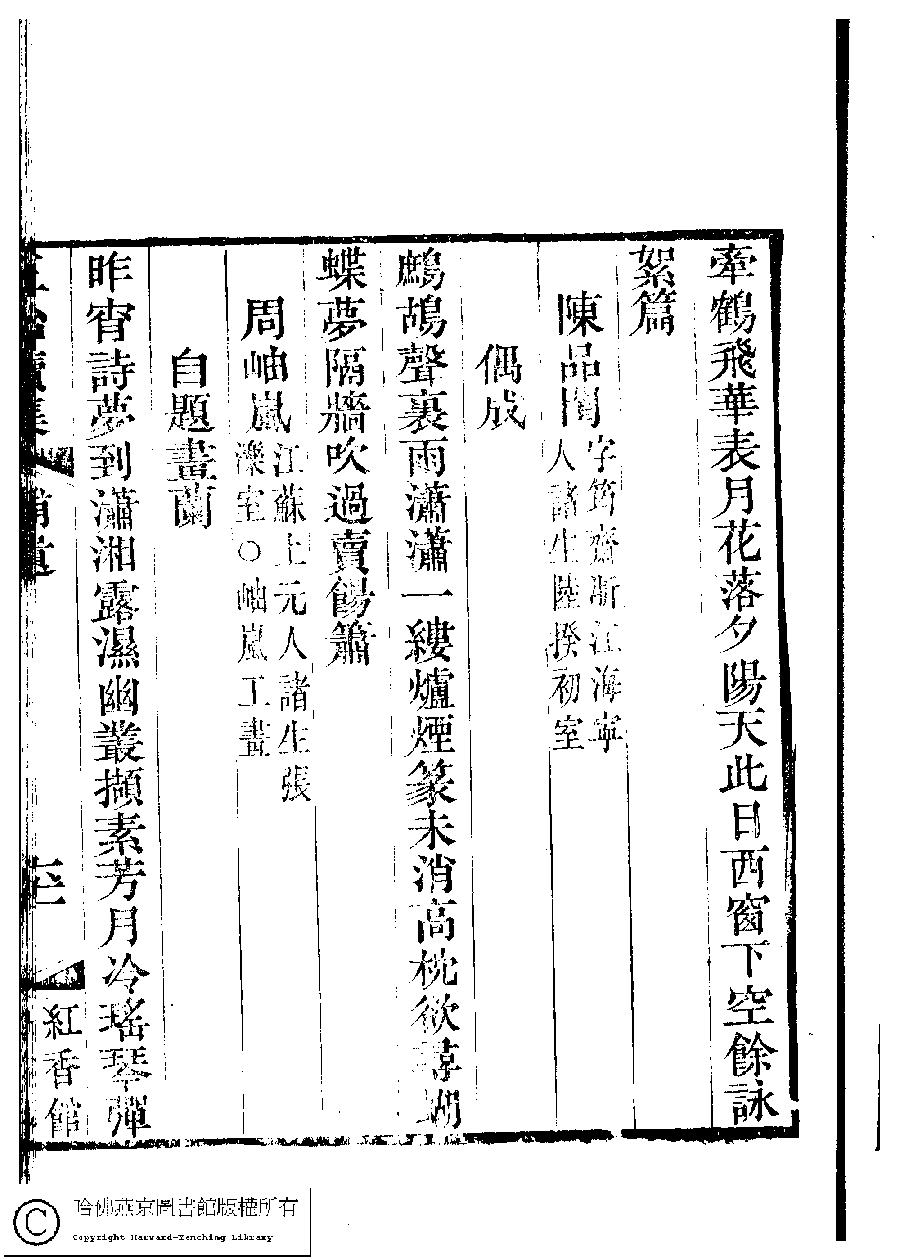 牽鶴飛華表月花落夕陽天此日西窗下空餘詠
絮篇
陳品閨字筠齋浙江海寧人諸生陸揆初室
偶成
鷓鴣聲裏雨瀟瀟一縷爐煙篆未消高枕欲尋蝴
蝶夢隔牆吹過賣餳簫
周岫嵐江蘇上元人諸生張濼室○岫嵐工畫
自題畫蘭
昨宵詩夢到瀟湘露濕幽叢擷素芳月冷瑤琴彈
紅香館
哈佛燕京圖書館版權所有
Copyright Harvard-Yenching Library